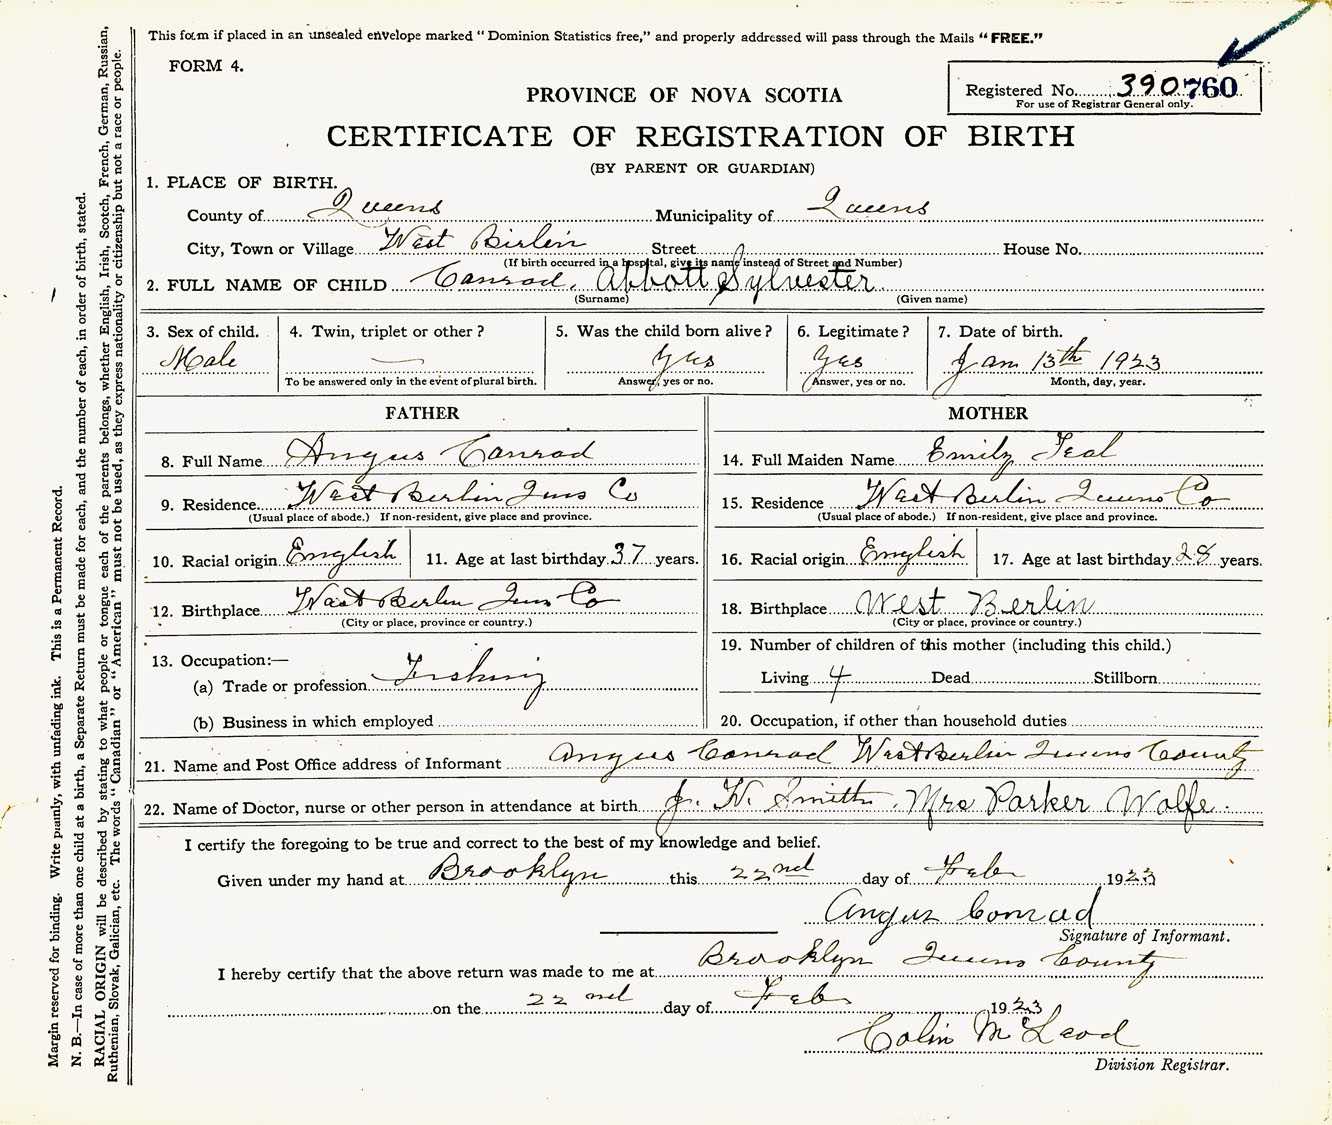 This form if placed in an unsealed envelope marked “Dominion Statistics free,” and properly addressed will pass through the Mails “FREE.”
FORM 4.
Registered No. 390 760
For use of Registrar General only.
PROVINCE OF NOVA SCOTIA
CERTIFICATE OF REGISTRATION OF BIRTH
(BY PARENT OR GUARDIAN)
1. PLACE OF BIRTH.
County of Queens Municipality of Queens
City, Town or Village West Birlin Street House No.
(If birth occurred in a hospital, give its name instead of Street and Number)
2. FULL NAME OF CHILD Conrad, Abbott Sylvester
(Surname) (Given name)
3. Sex of child. 4. Twin, triplet or other? 5. Was the child born alive? 6. Legitimate? 7. Date of birth.
Male — yes yes Jan 13th 1923
To be answered only in the event of plural birth. Answer, yes or no. Answer, yes or no. Month, day, year.
FATHER MOTHER
8. Full Name Angus Conrad 14. Full Maiden Name Emily Teal
9. Residence West Berlin Quns Co 15. Residence West Berlin Queens Co
(Usual place of abode.) If non-resident, give place and province. (Usual place of abode.) If non-resident, give place and province.
10. Racial origin English 11. Age at last birthday 37 years. 16. Racial origin English 17. Age at last birthday 28 years.
12. Birthplace West Berlin Quns Co 18. Birthplace West Berlin
(City or place, province or country.) (City or place, province or country.)
19. Number of children of this mother (including this child.)
13. Occupation:—
(a) Trade or profession Fishing Living 4 Dead Stillborn
(b) Business in which employed 20. Occupation, if other than household duties
21. Name and Post Office address of Informant Angus Conrad West Berlin Queens County
22. Name of Doctor, nurse or other person in attendance at birth J. W. Smith. Mrs Parker Wolfe.
I certify the foregoing to be true and correct to the best of my knowledge and belief.
Given under my hand at Brooklyn this 22nd day of Feb 1923
Angus Conrad
Signature of Informant.
I hereby certify that the above return was made to me at Brooklyn Queens County
on the 22nd day of Feb 1923
Colin McLeod
Division Registrar.
Margin reserved for binding. Write plainly, with unfading ink. This is a Permanent Record.
N. B.—In case of more than one child at a birth, a Separate Return must be made for each, and the number of each, in order of birth, stated.
RACIAL ORIGIN will be described by stating to what people or tongue each of the parents belongs, whether English, Irish, Scotch, French, German, Russian,
Ruthenian, Slovak, Galician, etc. The words “Canadian” or “American” must not be used, as they express nationality or citizenship but not a race or people.